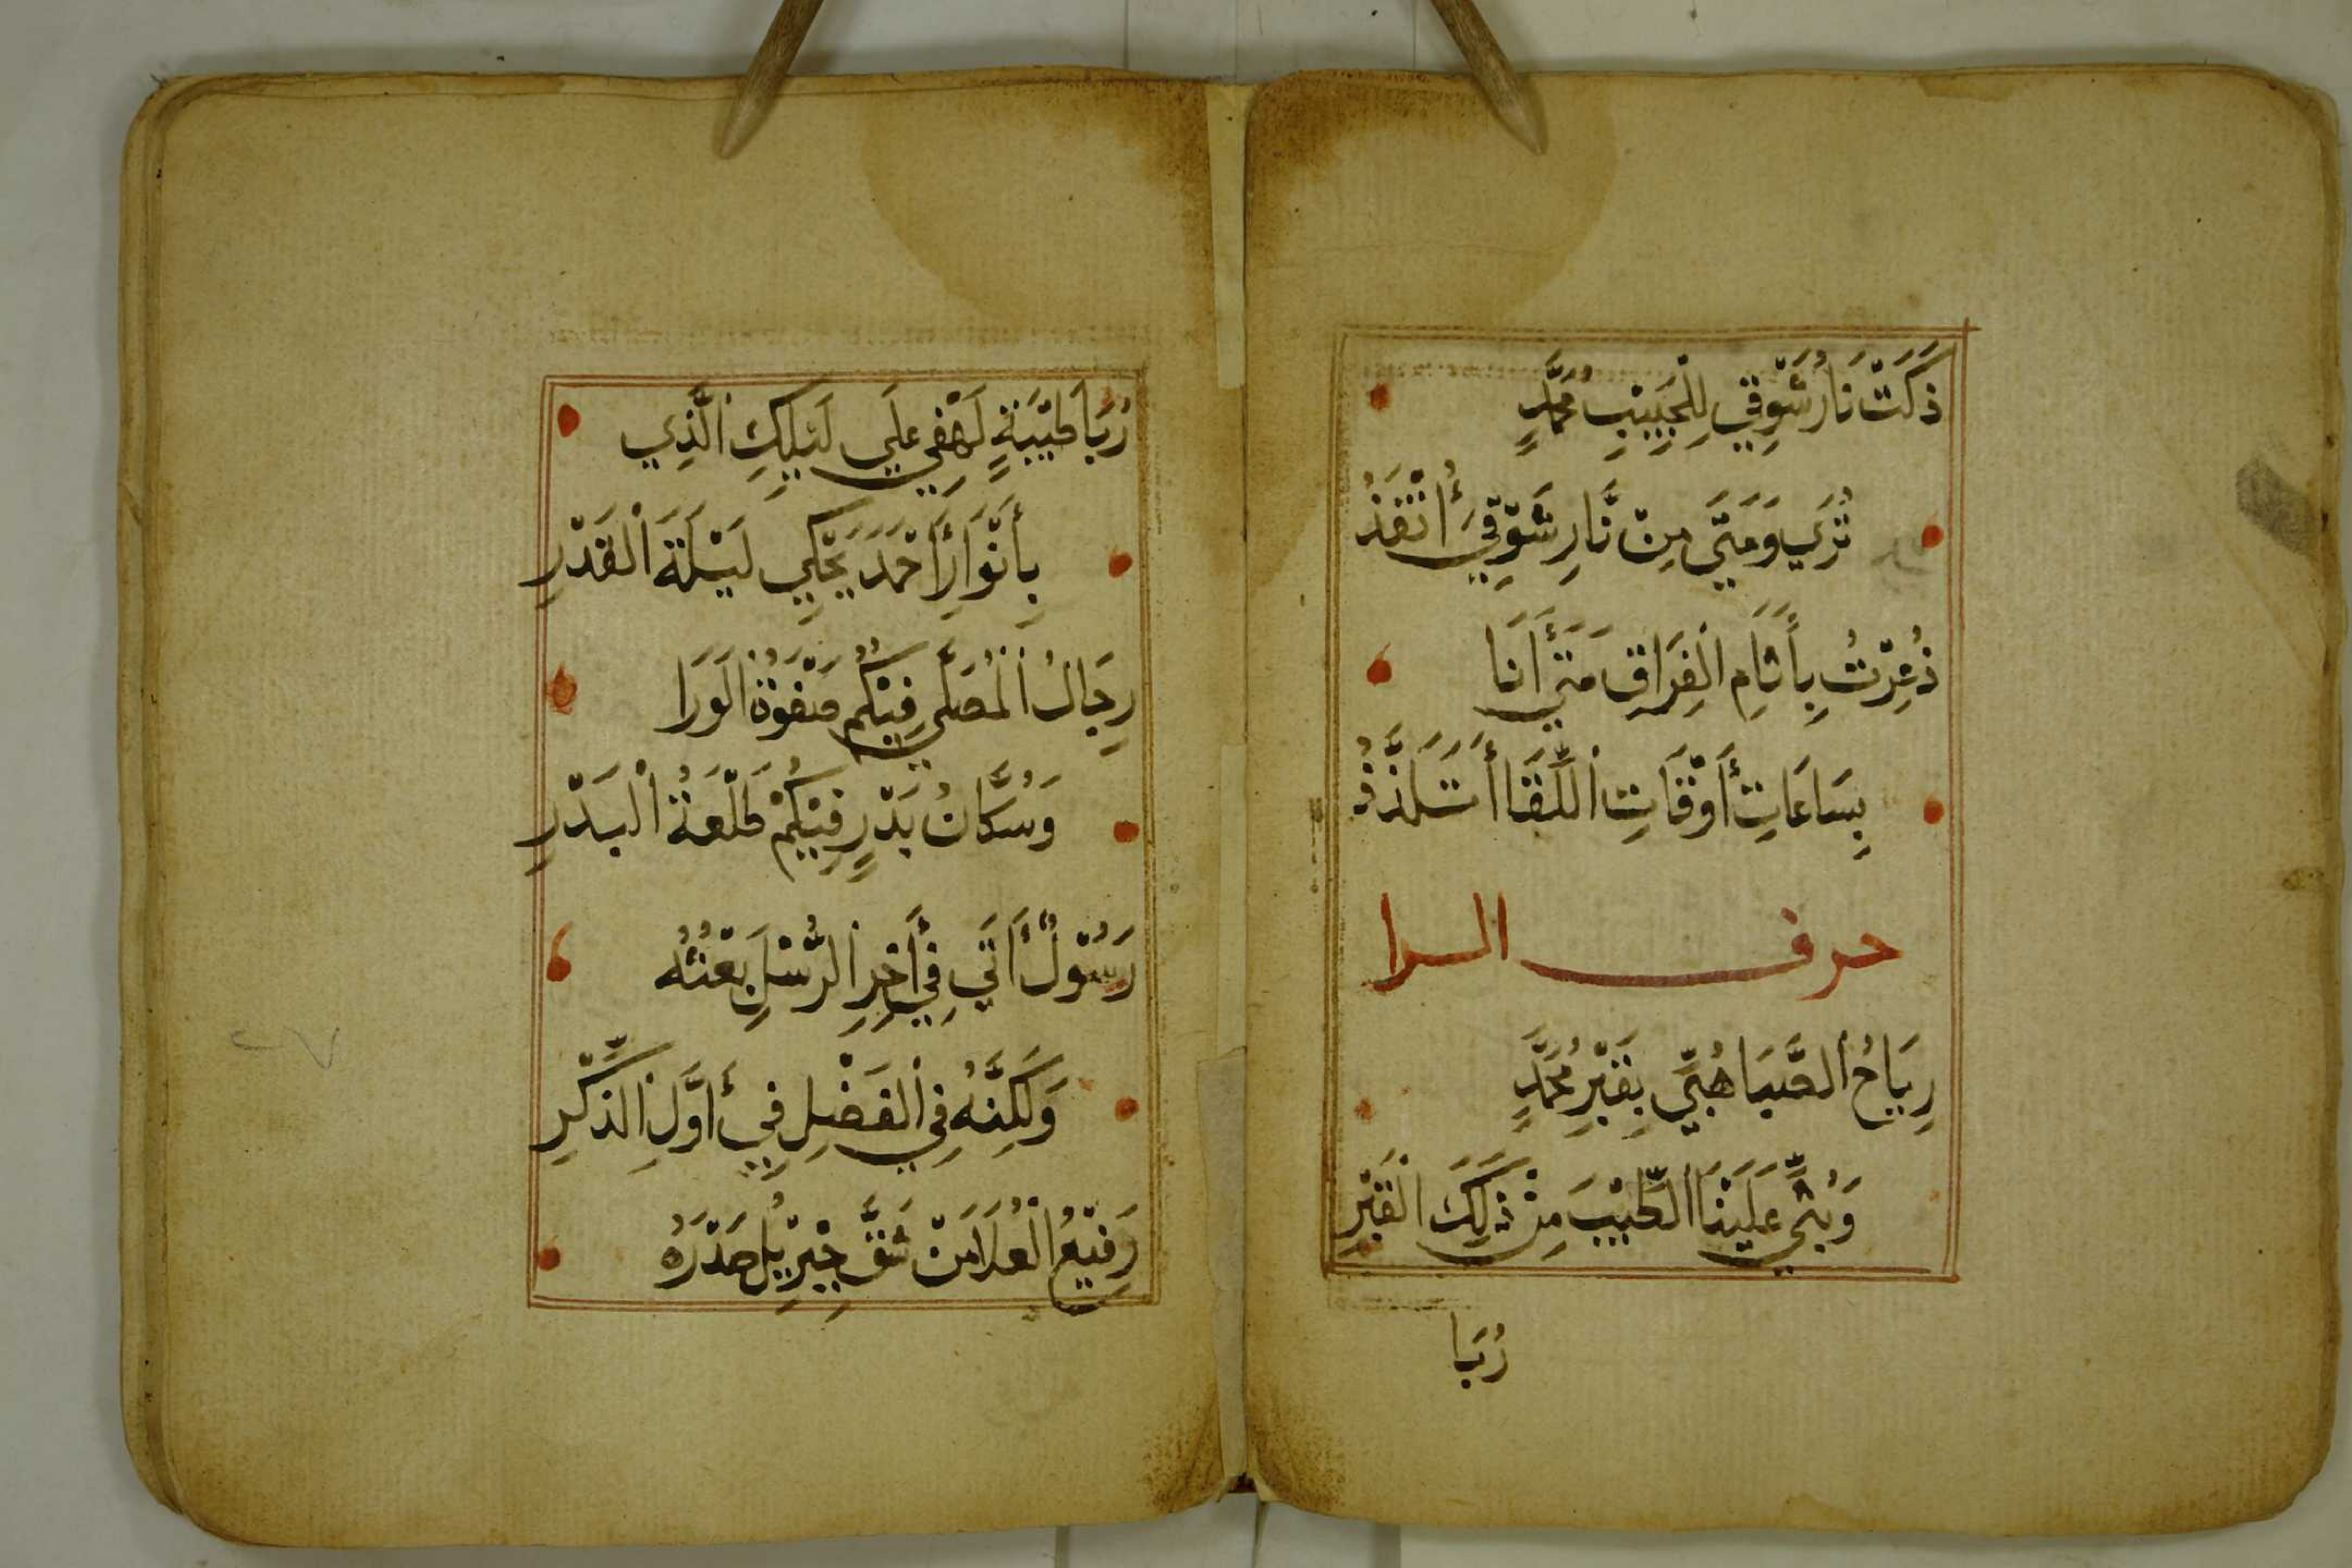 ذَكَتْ نَارُ شَوْقِي لِلْحَبِيبِ مُحَمَّدٍ
تُرَي وَمَتَي مِنْ نَّارِ شَوْقِيَ أُنْقَذُ
ذُعِرْتُ بِأَيَّامِ الْفِرَاقِ مَتَي أَنَا
بِسَاعَاتِ أَوْقَاتِ اللِّقَا أَتَلَذَّذُ
حرف الرا
رِيَاحُ الصَّبَا هُبِّي بِقَبْرِ مُحَمَّدٍ
وَبُثِّي عَلَيْنَا الطِّيْبَ مِنْ ذَلِكَ الْقَبْرِ
رُبَا
رُبَا طَيْبَةٍ لَهْفِي عَلَي لَيْلِكِ الَّذِي
بِأَنْوَارِ أَحْمَدَ يَحْكِي لَيْلَةَ الْقَدْرِ
رِجَالُ الْمُصَلَّي فِيْكُمُ صَفْوَةُ الْوَرَا
وَسُكَّانُ بَدْرٍ فِيْكُمْ طَلْعَةُ الْبَدْرِ
رَسُوْلٌ أَتَي فِي أَخِرِ الرُّسْلِ بَعْثُهُ
وَلَكِنَّهُ فِي الْفَضْلِ فِي أَوَّلِ الذِّكْرِ
رَفِيْعُ الْعُلَا مَنْ شَقَّ جِبْرِيْلُ صَدْرَهُ
٢٧